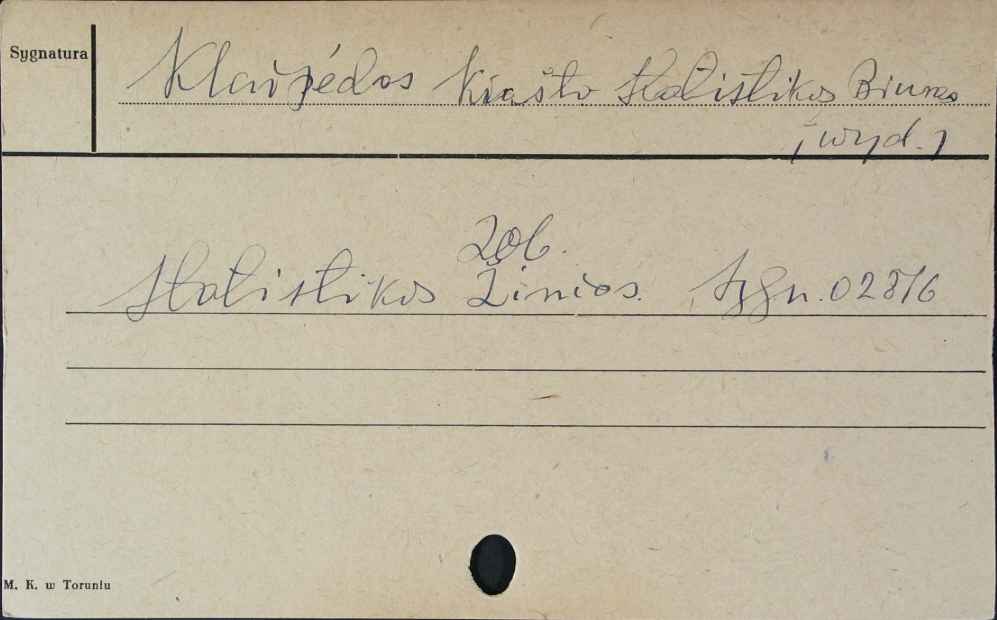 Sygnatura
Klaipėdos Miašto Statistikos Biuras
[wyd.]
zob.
Statistikos Žinios. Sygn. 02876
M. K. w Toruniu